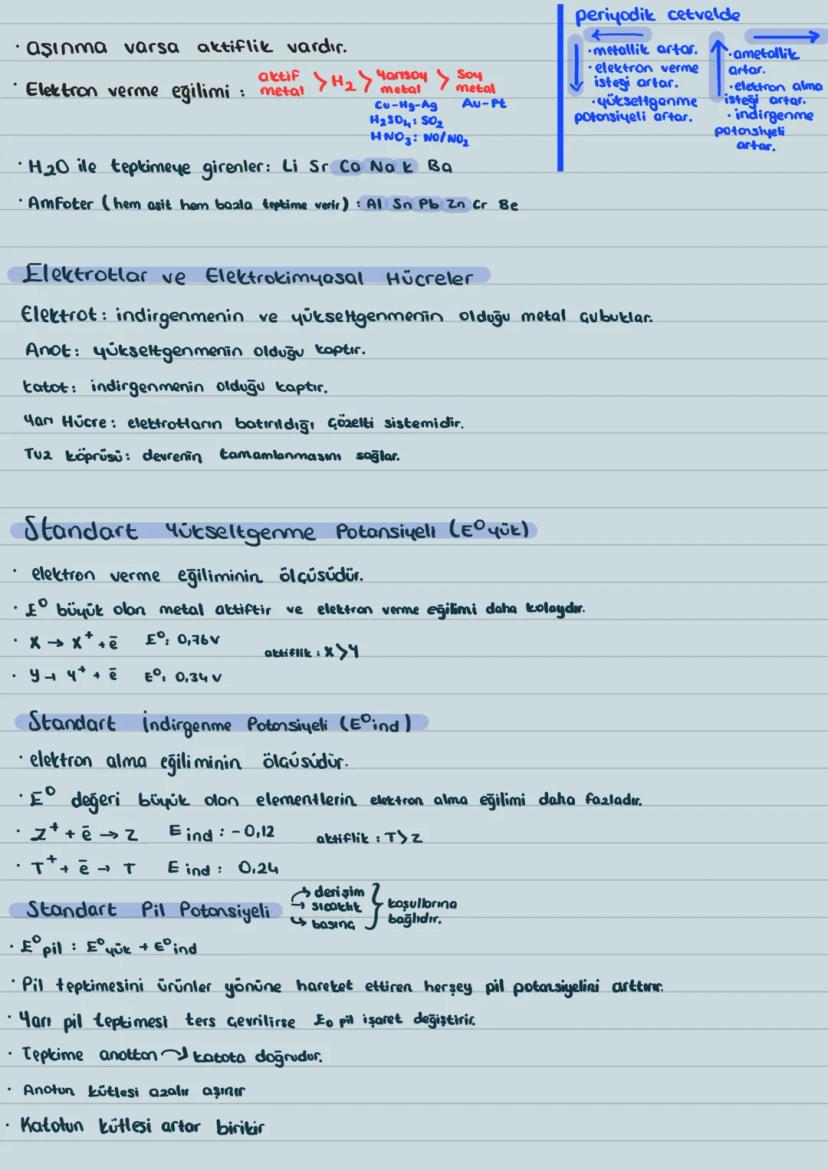 · aşınma varsa aktiflik vardır.
· Elektron verme eğilimi : aktif metal > H₂ > Yarısoy metal > Soy metal
Cu-Hg-Ag Au-Pt
H₂SO₄: SO₂
HNO₃: NO/NO₂
periyodik cetvelde
· metallik artar.
· elektron verme
isteği artar.
· yükseltgenme
potansiyeli artar.
· ametallik
artar.
· elektron alma
isteği artar.
· indirgenme
potansiyeli
artar.
· H₂O ile tepkimeye girenler: Li Sr Ca Na K Ba
· Amfoter (hem asit hem bazla tepkime verir) : Al Sn Pb Zn Cr Be
Elektrotlar ve Elektrokimyasal Hücreler
Elektrot : indirgenmenin ve yükseltgenmenin olduğu metal çubuklar.
Anot : yükseltgenmenin olduğu kaptır.
Katot : indirgenmenin olduğu kaptır.
Yarı Hücre : elektrotların batırıldığı çözelti sistemidir.
Tuz köprüsü : devrenin tamamlanmasını sağlar.
Standart Yükseltgenme Potansiyeli (E⁰yük)
· elektron verme eğiliminin ölçüsüdür.
· E⁰ büyük olan metal aktiftir ve elektron verme eğilimi daha kolaydır.
· X → X⁺ + ē E⁰: 0,76 V aktiflik : X > Y
· Y → Y⁺ + ē E⁰: 0,34 V
Standart İndirgenme Potansiyeli (E⁰ind)
· elektron alma eğiliminin ölçüsüdür.
· E⁰ değeri büyük olan elementlerin elektron alma eğilimi daha fazladır.
· Z⁺ + ē → Z E ind : -0,12 aktiflik : T > Z
· T⁺ + ē → T E ind : 0,24
Standart Pil Potansiyeli → derişim → sıcaklık → basınç } koşullarına bağlıdır.
· E⁰pil : E⁰yük + E⁰ind
· Pil tepkimesini ürünler yönüne hareket ettiren herşey pil potansiyelini arttırır.
· Yarı pil tepkimesi ters çevrilirse E₀ pil işaret değiştirir.
· Tepkime anottan → katota doğrudur.
· Anotun kütlesi azalır aşınır
· Katotun kütlesi artar birikir